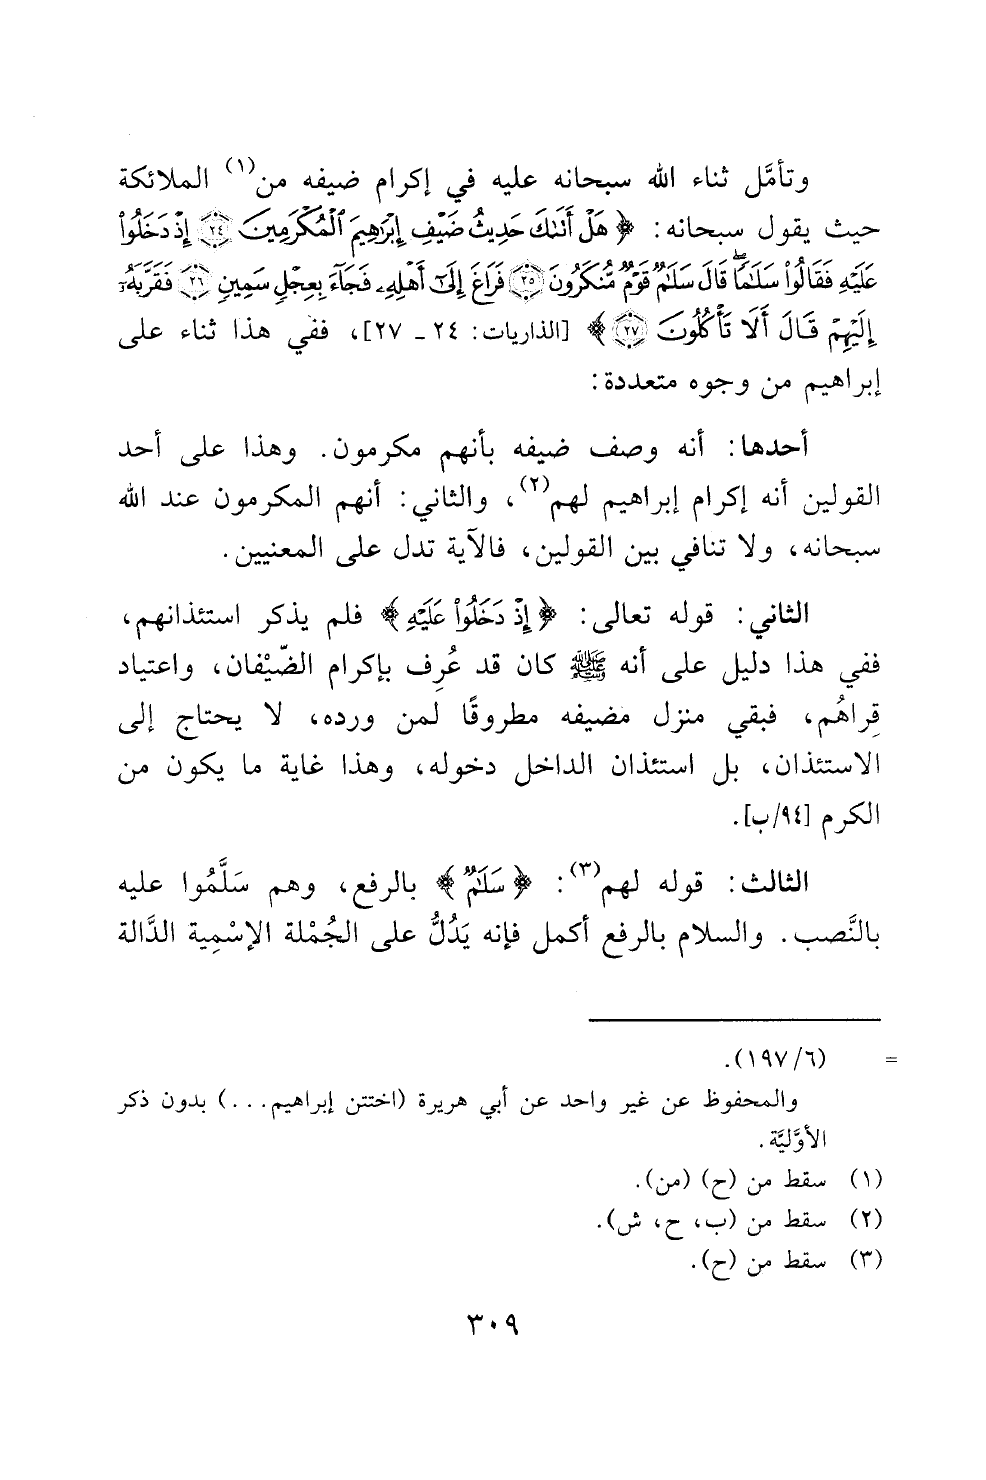 وتأمَّل ثناء الله سبحانه عليه في إكرام ضيفه من(١) الملائكة
حيث يقول سبحانه: ﴿هَلْ أَتَىٰكَ حَدِيثُ ضَيْفِ إِبْرَٰهِيمَ ٱلْمُكْرَمِينَ ۝٢٤ إِذْ دَخَلُوا۟
عَلَيْهِ فَقَالُوا۟ سَلَٰمًا ۖ قَالَ سَلَٰمٌ قَوْمٌ مُّنكَرُونَ ۝٢٥ فَرَاغَ إِلَىٰٓ أَهْلِهِۦ فَجَآءَ بِعِجْلٍ سَمِينٍ ۝٢٦ فَقَرَّبَهُۥٓ
إِلَيْهِمْ قَالَ أَلَا تَأْكُلُونَ ۝٢٧﴾ [الذاريات: ٢٤ ـ ٢٧]، ففي هذا ثناء على
إبراهيم من وجوه متعددة:
أحدها: أنه وصف ضيفه بأنهم مكرمون. وهذا على أحد
القولين أنه إكرام إبراهيم لهم(٢)، والثاني: أنهم المكرمون عند الله
سبحانه، ولا تنافي بين القولين، فالآية تدل على المعنيين.
الثاني: قوله تعالى: ﴿إِذْ دَخَلُوا۟ عَلَيْهِ﴾ فلم يذكر استئذانهم،
ففي هذا دليل على أنه ﷺ كان قد عُرِف بإكرام الضِّيْفان، واعتياد
قِراهُم، فبقي منزل مضيفه مطروقًا لمن ورده، لا يحتاج إلى
الاستئذان، بل استئذان الداخل دخوله، وهذا غاية ما يكون من
الكرم [٩٤/ب].
الثالث: قوله لهم(٣): ﴿سَلَٰمٌ﴾ بالرفع، وهم سَلَّمُوا عليه
بالنَّصب. والسلام بالرفع أكمل فإنه يَدُلُّ على الجُمْلة الإسْمِية الدَّالة
= (٦/١٩٧).
والمحفوظ عن غير واحد عن أبي هريرة (اختتن إبراهيم...) بدون ذكر
الأوَّليَّة.
(١) سقط من (ح) (من).
(٢) سقط من (ب، ح، ش).
(٣) سقط من (ح).
٣٠٩